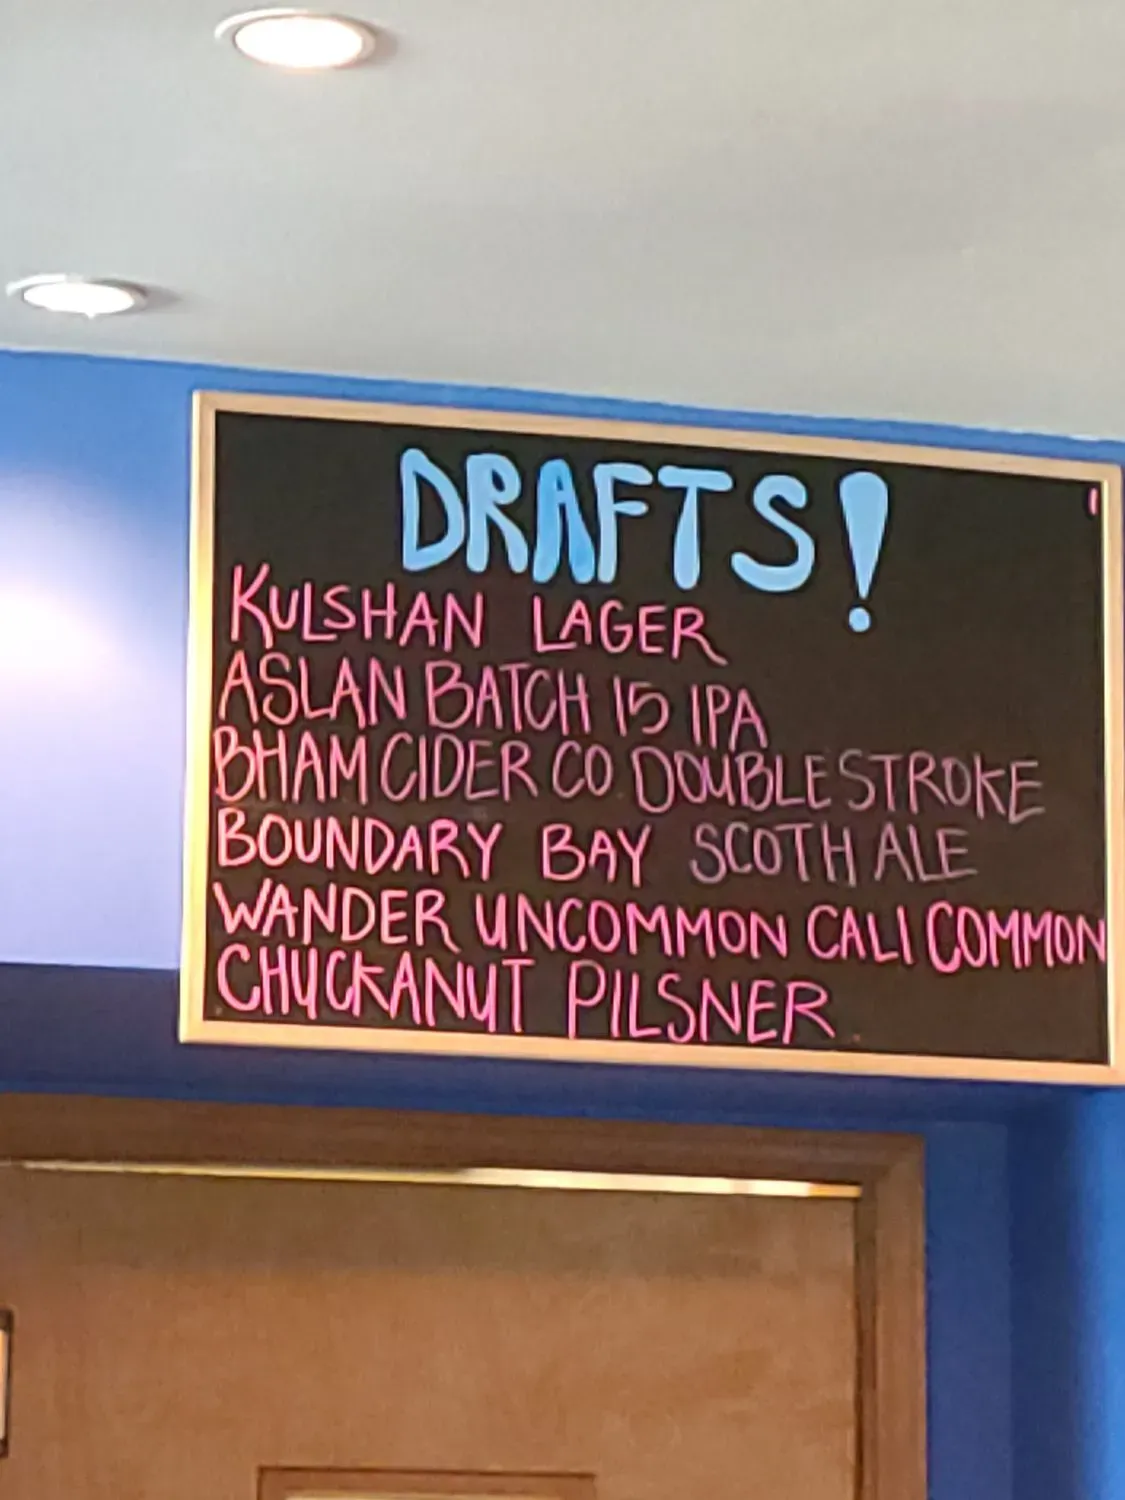 DRAFTS!
KULSHAN LAGER
ASLAN BATCH 15 IPA
BHAM CIDER CO DOUBLE STROKE
BOUNDARY BAY SCOTH ALE
WANDER UNCOMMON CALI COMMON
CHUCKANUT PILSNER